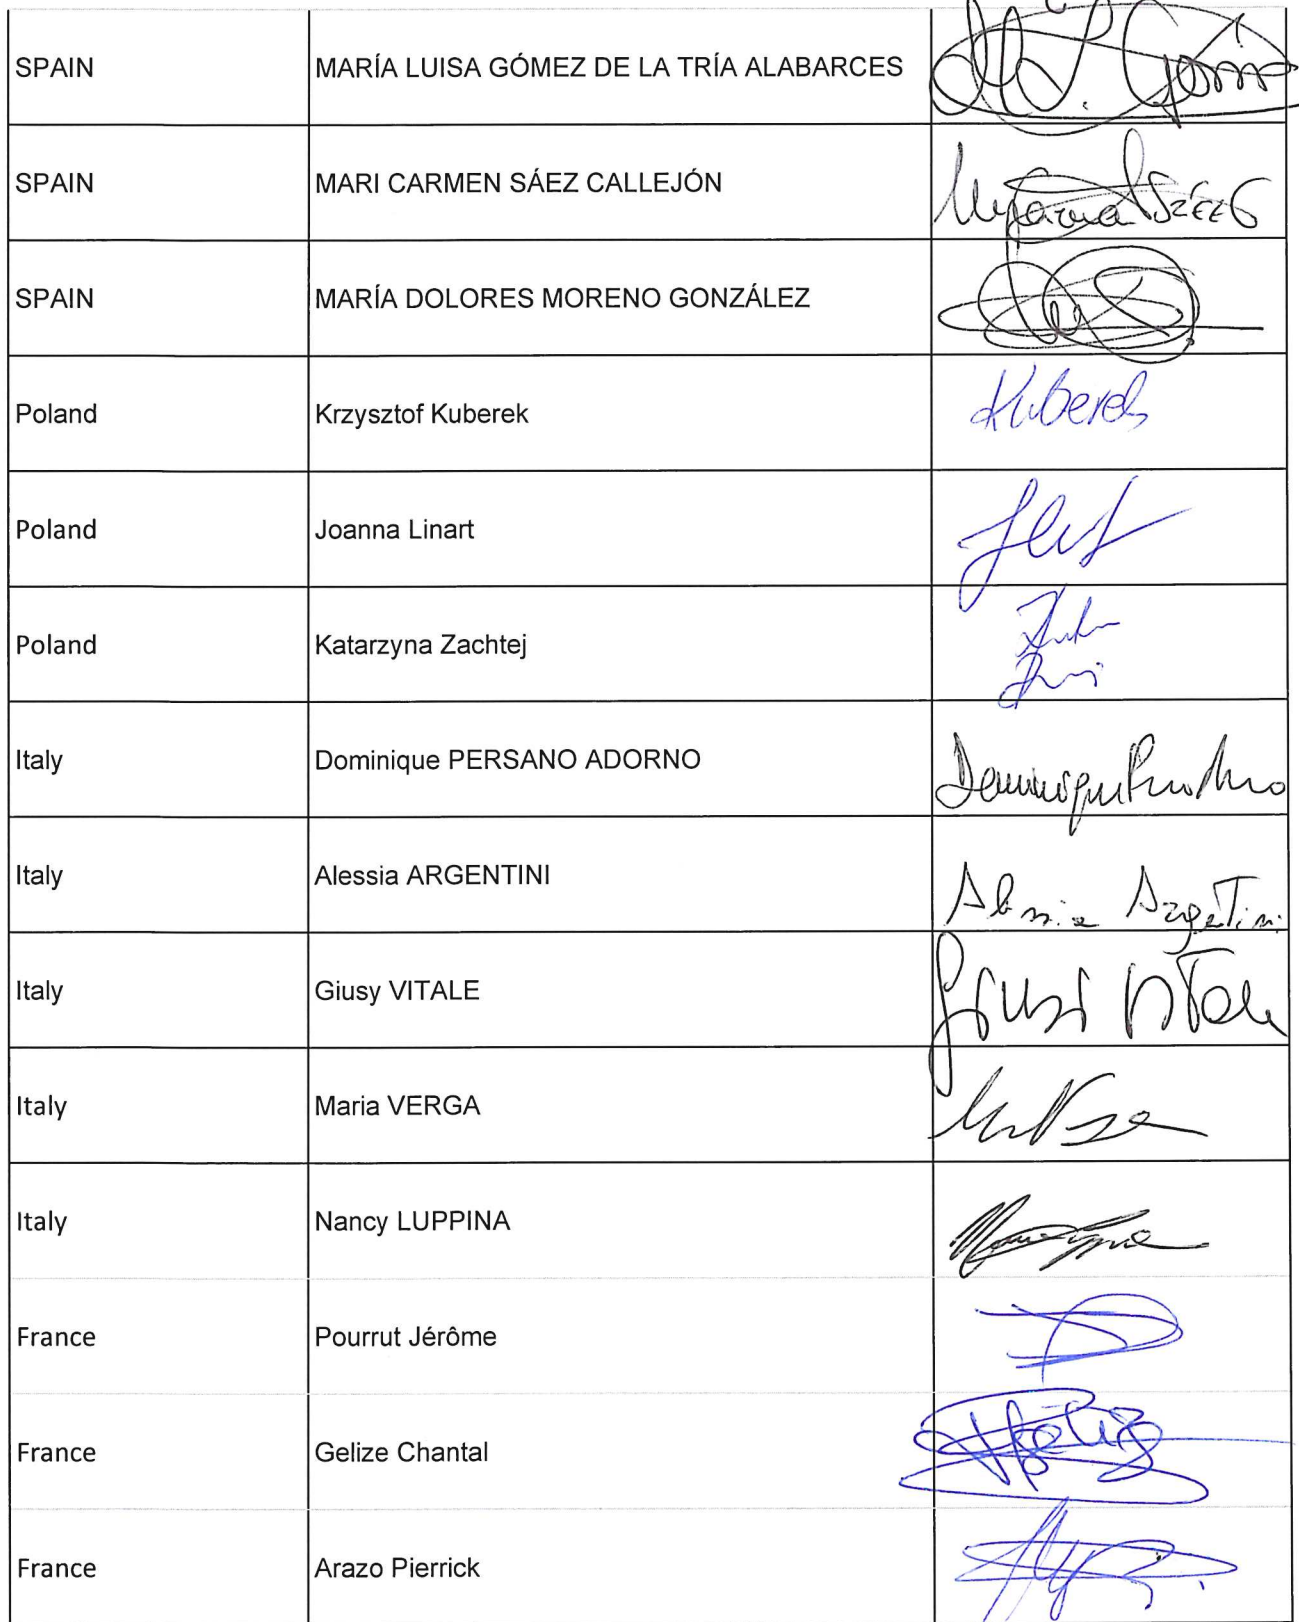 SPAIN MARÍA LUISA GÓMEZ DE LA TRÍA ALABARCES
SPAIN MARI CARMEN SÁEZ CALLEJÓN
SPAIN MARÍA DOLORES MORENO GONZÁLEZ
Poland Krzysztof Kuberek Kuberek
Poland Joanna Linart
Poland Katarzyna Zachtej
Italy Dominique PERSANO ADORNO
Italy Alessia ARGENTINI Alessia Argentini
Italy Giusy VITALE Giusi Vitale
Italy Maria VERGA
Italy Nancy LUPPINA
France Pourrut Jérôme
France Gelize Chantal
France Arazo Pierrick